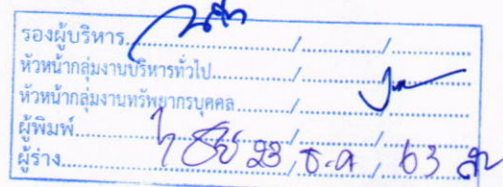 รองผู้บริหาร............/............/............
หัวหน้ากลุ่มงานบริหารทั่วไป............/............/............
หัวหน้ากลุ่มงานทรัพยากรบุคคล............/............/............
ผู้พิมพ์............/............/............
ผู้ร่าง............23/ธ.ค/63